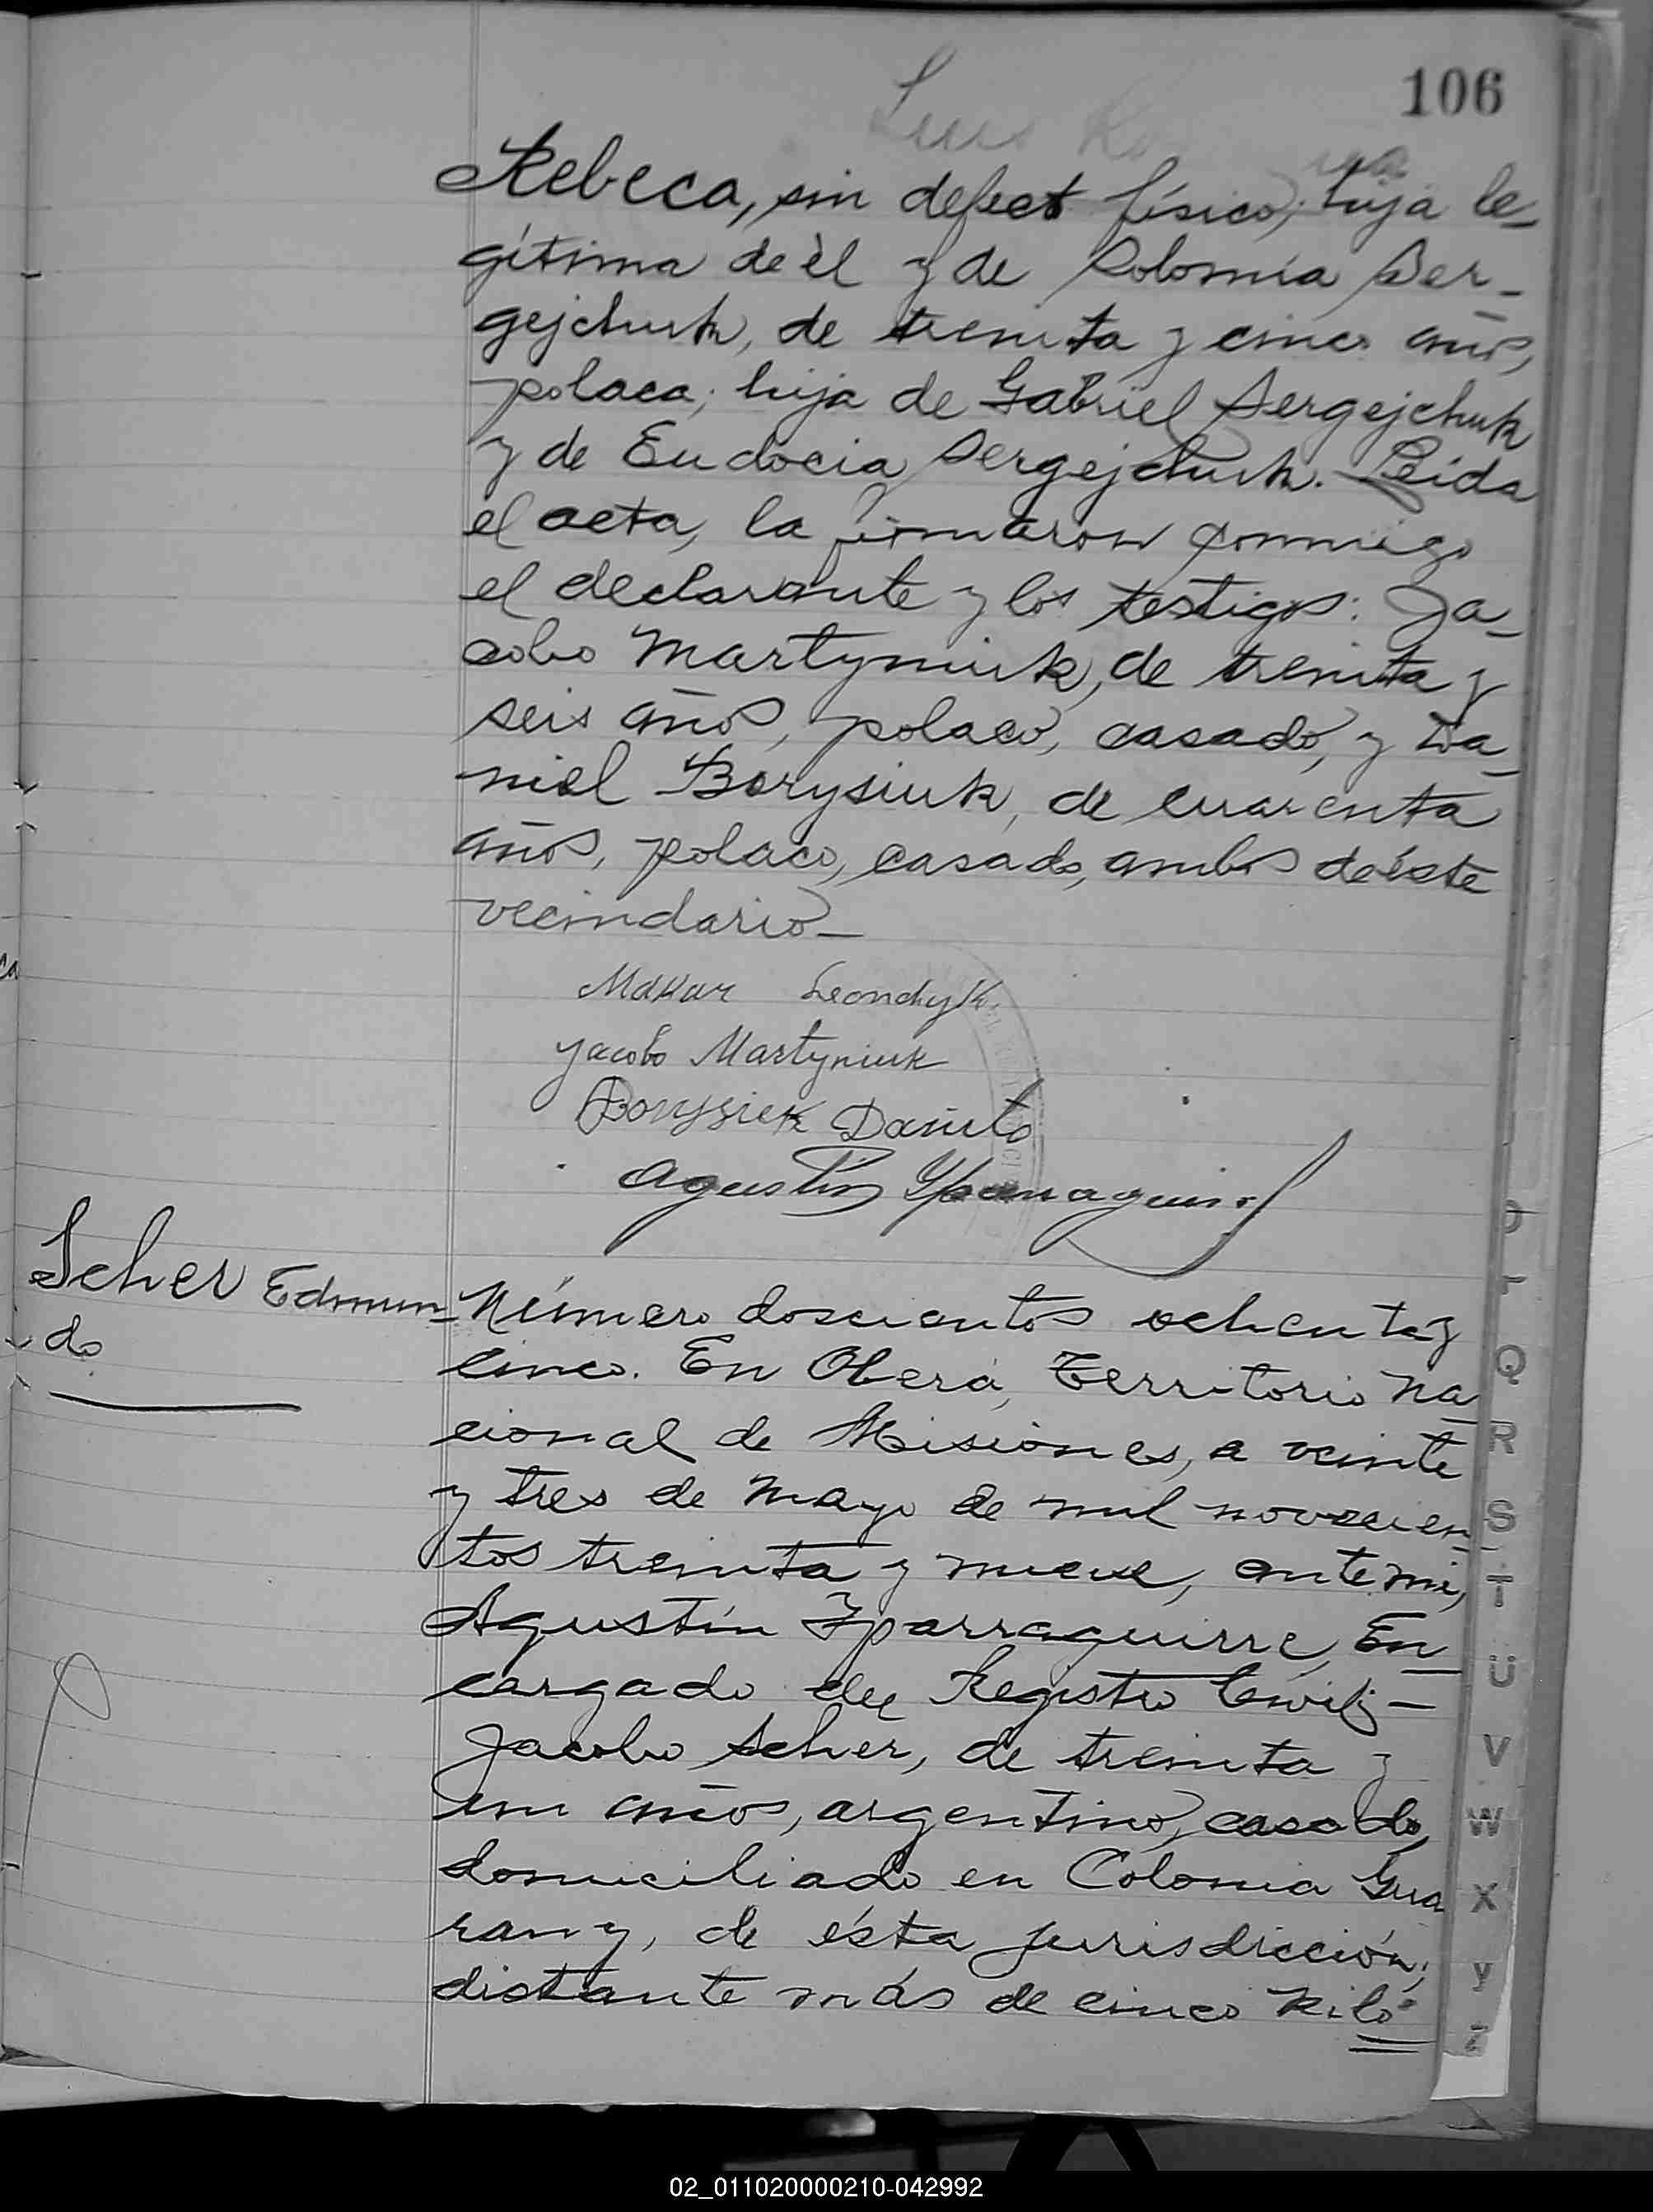 106
Rebeca, sin defecto físico, hija le-
gítima de él y de Solomía Ser-
gejchuk, de treinta y cinco años,
polaca; hija de Gabriel Sergejchuk
y de Eudocia Sergejchuk. Leída
el acta, la firmaron conmigo
el declarante y los testigos: Ja-
cobo Martyniuk, de treinta y
seis años, polaco, casado, y Da-
niel Borysiuk, de cuarenta
años, polaco, casado, ambos de éste
vecindario_
Makar Leondyk
Jacobo Martyniuk
Borysiek Danilo
Agustín Yparraguirre
Scher Edmun-
do
Número doscientos ochenta y
cinco. En Oberá, Territorio Na-
cional de Misiones, a veinte
y tres de Mayo de mil novecien-
tos treinta y nueve, ante mi,
Agustín Yparraguirre, En-
cargado del Registro Civil;-
Jacobo Scher, de treinta y
un años, argentino, casado,
domiciliado en Colonia Gua
rany, de ésta jurisdicción;
distante más de cinco kiló=
Q
R
S
T
U
V
W
X
Y
Z
02_011020000210-042992